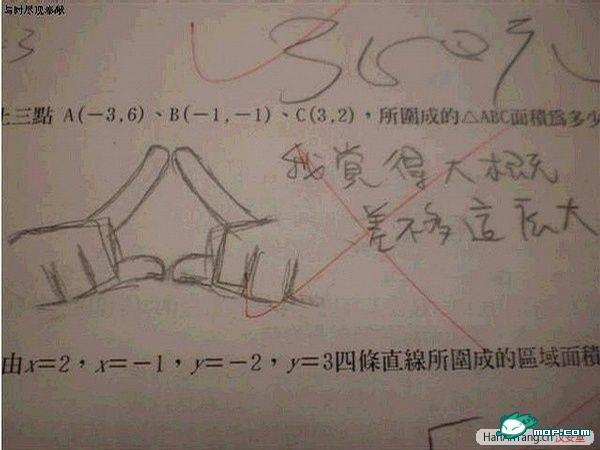 与时尽观奉献
-3
360元
上三點 A(-3,6)、B(-1,-1)、C(3,2)，所圍成的△ABC面積爲多少
我覺得大概
差不多這么大
由x=2，x=-1，y=-2，y=3四條直線所圍成的區域面積
mop.com
HanAnYang.cn汉安堂